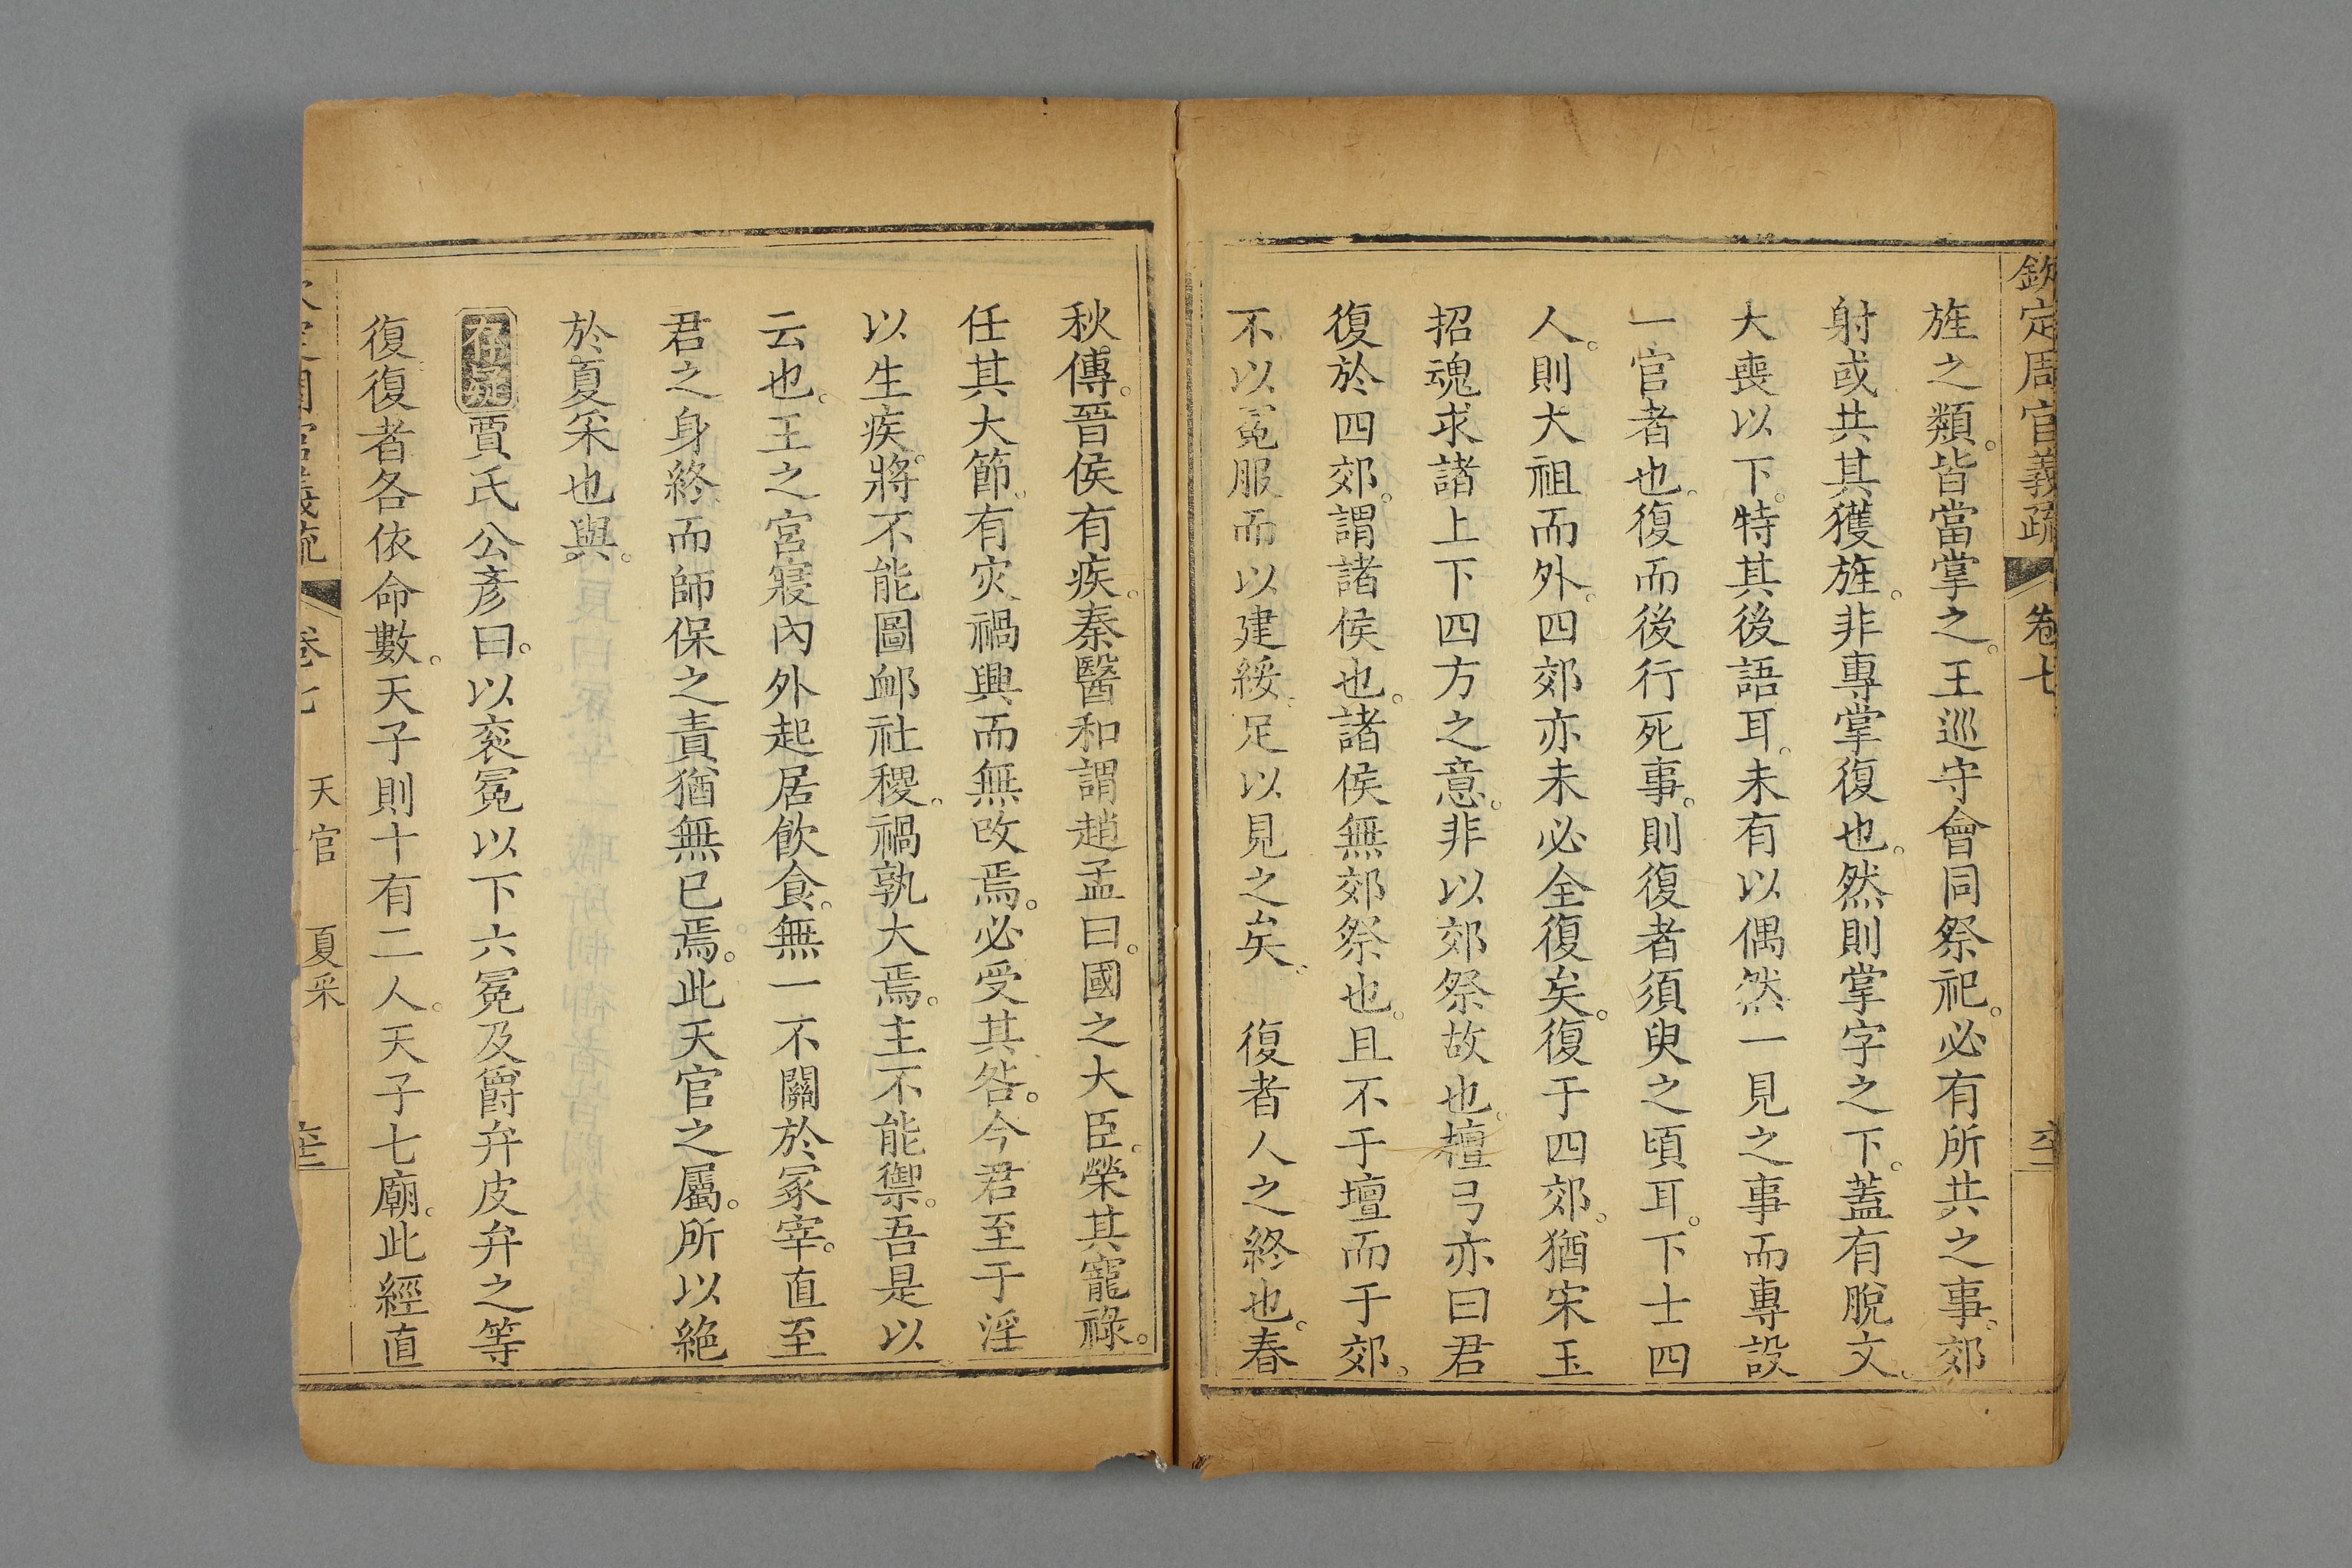 欽定周官義疏 卷七
旌之類。皆當掌之。王巡守會同祭祀。必有所共之事。郊
射或共其獲旌。非專掌復也。然則掌字之下。蓋有脫文。
大喪以下。特其後語耳。未有以偶然一見之事而專設
一官者也。復而後行死事。則復者須臾之頃耳。下士四
人。則大祖而外。四郊亦未必全復矣。復于四郊。猶宋玉
招魂求諸上下四方之意。非以郊祭故也。檀弓亦曰君
復於四郊。謂諸侯也。諸侯無郊祭也。且不于壇而于郊。
不以冕服而以建綏。足以見之矣。 復者人之終也。春
秋傳。晉侯有疾。秦醫和謂趙孟曰。國之大臣。榮其寵祿。
任其大節。有灾禍興而無改焉。必受其咎。今君至于淫
以生疾。將不能圖卹社稷。禍孰大焉。主不能禦。吾是以
云也。王之宮寢內外起居飲食。無一不關於冢宰。直至
君之身終而師保之責猶無已焉。此天官之屬。所以絕
於夏采也與。
存疑 賈氏公彥曰。以衮冕以下六冕及爵弁皮弁之等
復復者各依命數。天子則十有二人。天子七廟。此經直
天官 夏采